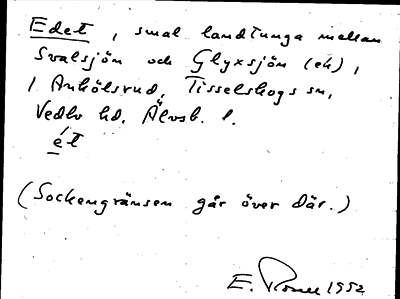 Edet, smal landtunga mellan
Svalsjön och Glyxsjön (ek),
i Ankölsrud, Tisselskogs sn,
Vedbo hd. Älvsb. l.
ét
(Sockengränsen går över där.)
E. 1952